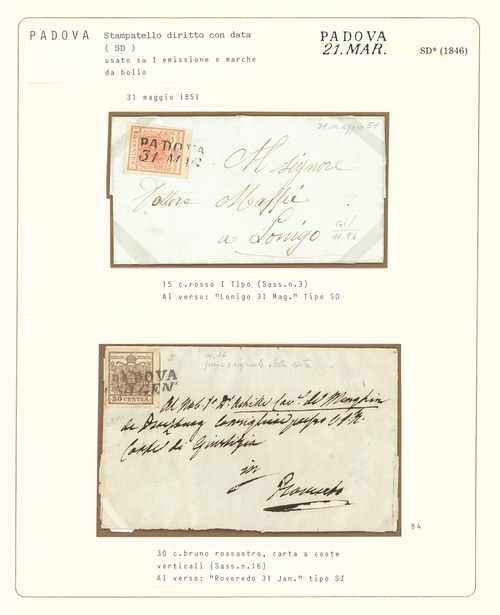 PADOVA Stampatello diritto con data
( SD )
usato su I emissione e marche
da bollo
PADOVA
21.MAR. SD* (1846)
31 maggio 1851
31 maggio 51
PADOVA
31 MAG
Al Signore
Dottore Maffei
a Lonigo
15 c.rosso I Tipo (Sass.n.3)
Al verso: "Lonigo 31 Mag." Tipo SD
PADOVA
GEN
30 CENTES
Al Nob.
di Giustizia
in
Roveredo
84
30 c.bruno rossastro, carta a coste
verticali (Sass.n.16)
Al verso: "Roveredo 31 Jan." tipo SI